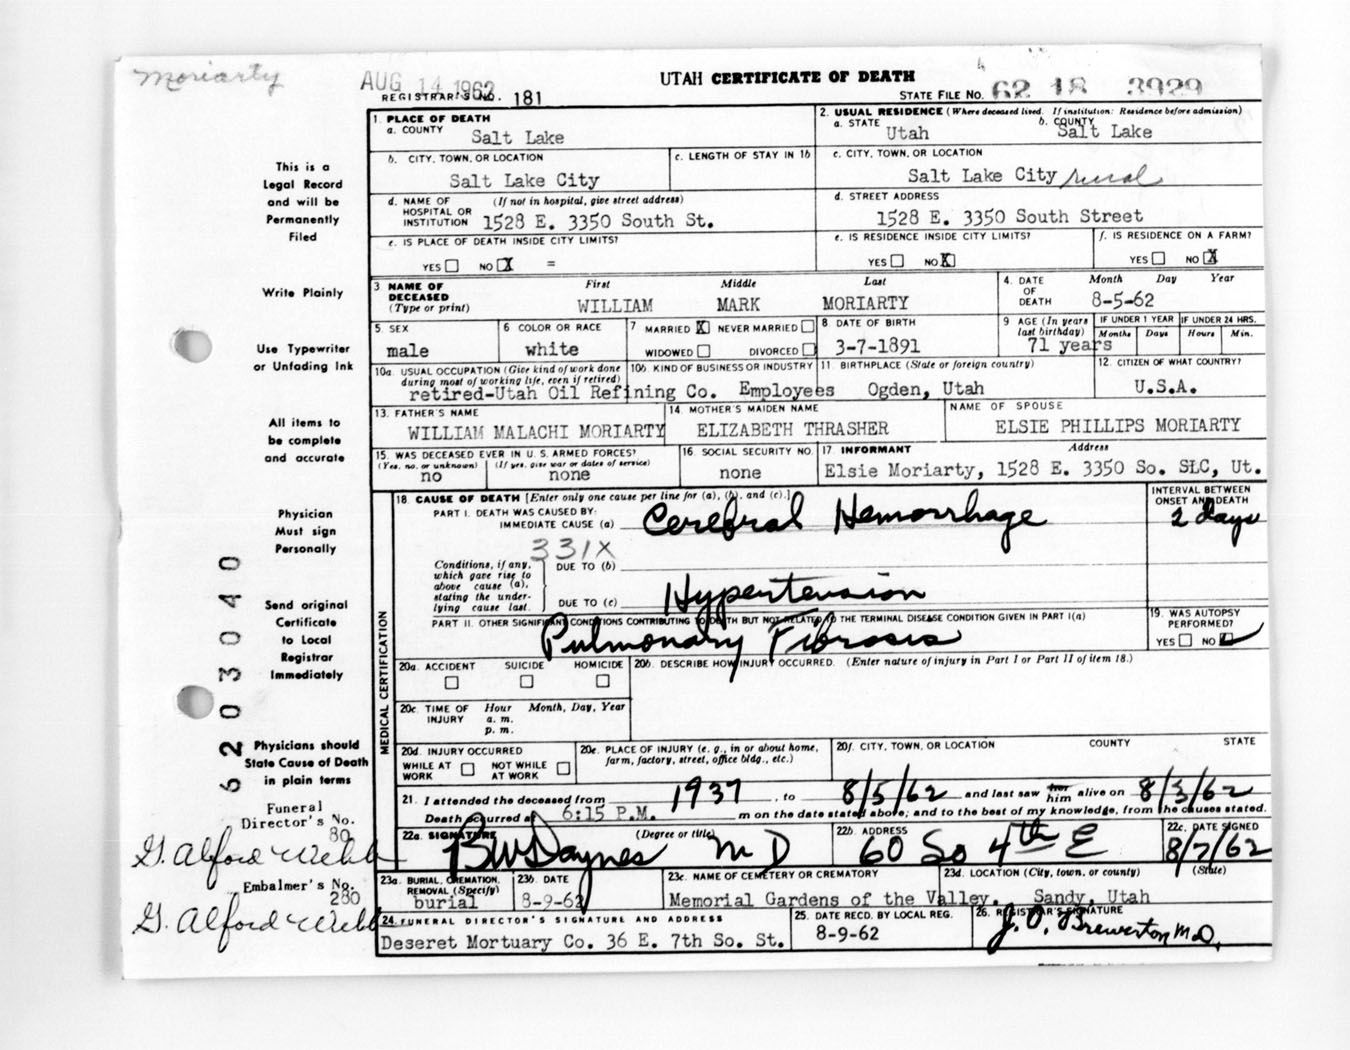 Moriarty
AUG 14 1962
UTAH CERTIFICATE OF DEATH
REGISTRAR'S NO. 181
STATE FILE NO. 62 18 3929
1. PLACE OF DEATH
a. COUNTY
Salt Lake
2. USUAL RESIDENCE (Where deceased lived. If institution: Residence before admission)
a. STATE
Utah
b. COUNTY
Salt Lake
b. CITY, TOWN, OR LOCATION
Salt Lake City
c. LENGTH OF STAY IN 1b
c. CITY, TOWN, OR LOCATION
Salt Lake City rural
d. NAME OF HOSPITAL OR INSTITUTION
(If not in hospital, give street address)
1528 E. 3350 South St.
d. STREET ADDRESS
1528 E. 3350 South Street
e. IS PLACE OF DEATH INSIDE CITY LIMITS?
YES NO X =
e. IS RESIDENCE INSIDE CITY LIMITS?
YES NO X
f. IS RESIDENCE ON A FARM?
YES NO X
3. NAME OF DECEASED
(Type or print)
First Middle Last
WILLIAM MARK MORIARTY
4. DATE OF DEATH
Month Day Year
8-5-62
5. SEX
male
6 COLOR OR RACE
white
7 MARRIED X NEVER MARRIED
WIDOWED DIVORCED
8 DATE OF BIRTH
3-7-1891
9 AGE (In years last birthday)
71 years
IF UNDER 1 YEAR
Months Days
IF UNDER 24 HRS.
Hours Min.
10a. USUAL OCCUPATION (Give kind of work done during most of working life, even if retired)
10b. KIND OF BUSINESS OR INDUSTRY
retired-Utah Oil Refining Co. Employees
11. BIRTHPLACE (State or foreign country)
Ogden, Utah
12. CITIZEN OF WHAT COUNTRY?
U.S.A.
13. FATHER'S NAME
WILLIAM MALACHI MORIARTY
14. MOTHER'S MAIDEN NAME
ELIZABETH THRASHER
NAME OF SPOUSE
ELSIE PHILLIPS MORIARTY
15. WAS DECEASED EVER IN U.S. ARMED FORCES?
(Yes, no, or unknown) (If yes, give war or dates of service)
no none
16. SOCIAL SECURITY NO.
none
17. INFORMANT Address
Elsie Moriarty, 1528 E. 3350 So. SLC, Ut.
18. CAUSE OF DEATH [Enter only one cause per line for (a), (b), and (c).]
PART I. DEATH WAS CAUSED BY:
IMMEDIATE CAUSE (a) Cerebral Hemorrhage
INTERVAL BETWEEN ONSET AND DEATH
2 days
331X
Conditions, if any, which gave rise to above cause (a), stating the underlying cause last.
DUE TO (b)
DUE TO (c) Hypertension
PART II. OTHER SIGNIFICANT CONDITIONS CONTRIBUTING TO DEATH BUT NOT RELATED TO THE TERMINAL DISEASE CONDITION GIVEN IN PART I(a)
Pulmonary Fibrosis
19. WAS AUTOPSY PERFORMED?
YES NO
MEDICAL CERTIFICATION
20a. ACCIDENT SUICIDE HOMICIDE
20b. DESCRIBE HOW INJURY OCCURRED. (Enter nature of injury in Part I or Part II of item 18.)
20c. TIME OF INJURY
Hour Month, Day, Year
a. m.
p. m.
20d. INJURY OCCURRED
WHILE AT WORK NOT WHILE AT WORK
20e. PLACE OF INJURY (e. g., in or about home, farm, factory, street, office bldg., etc.)
20f. CITY, TOWN, OR LOCATION COUNTY STATE
21. I attended the deceased from 1937, to 8/5/62 and last saw her him alive on 8/3/62
Death occurred at 6:15 P.M. m on the date stated above; and to the best of my knowledge, from the causes stated.
22a. SIGNATURE (Degree or title)
BW Daynes MD
22b. ADDRESS
60 So 4th E
22c. DATE SIGNED
8/7/62
23a. BURIAL, CREMATION, REMOVAL (Specify)
burial
23b. DATE
8-9-62
23c. NAME OF CEMETERY OR CREMATORY
Memorial Gardens of the Valley.
23d. LOCATION (City, town, or county) (State)
Sandy, Utah
24. FUNERAL DIRECTOR'S SIGNATURE AND ADDRESS
Deseret Mortuary Co. 36 E. 7th So. St.
25. DATE RECD. BY LOCAL REG.
8-9-62
26. REGISTRAR'S SIGNATURE
J.O. Brewerton M.D.
This is a
Legal Record
and will be
Permanently
Filed
Write Plainly
Use Typewriter
or Unfading Ink
All items to
be complete
and accurate
Physician
Must sign
Personally
Send original
Certificate
to Local
Registrar
Immediately
Physicians should
State Cause of Death
in plain terms
Funeral
Director's No.
80
G. Alford Webb
Embalmer's No.
280
G. Alford Webb
6203040